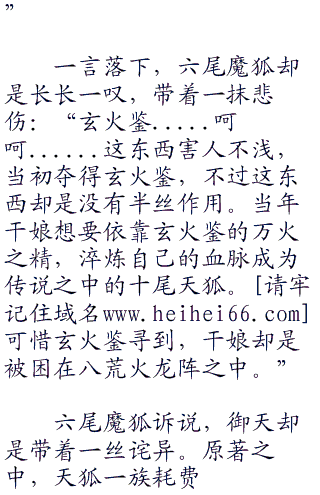 ”
一言落下，六尾魔狐却
是长长一叹，带着一抹悲
伤：“玄火鉴.....呵
呵......这东西害人不浅，
当初夺得玄火鉴，不过这东
西却是没有半丝作用。当年
干娘想要依靠玄火鉴的万火
之精，淬炼自己的血脉成为
传说之中的十尾天狐。[请牢
记住域名www.heihei66.com]
可惜玄火鉴寻到，干娘却是
被困在八荒火龙阵之中。”
六尾魔狐诉说，御天却
是带着一丝诧异。原著之
中，天狐一族耗费